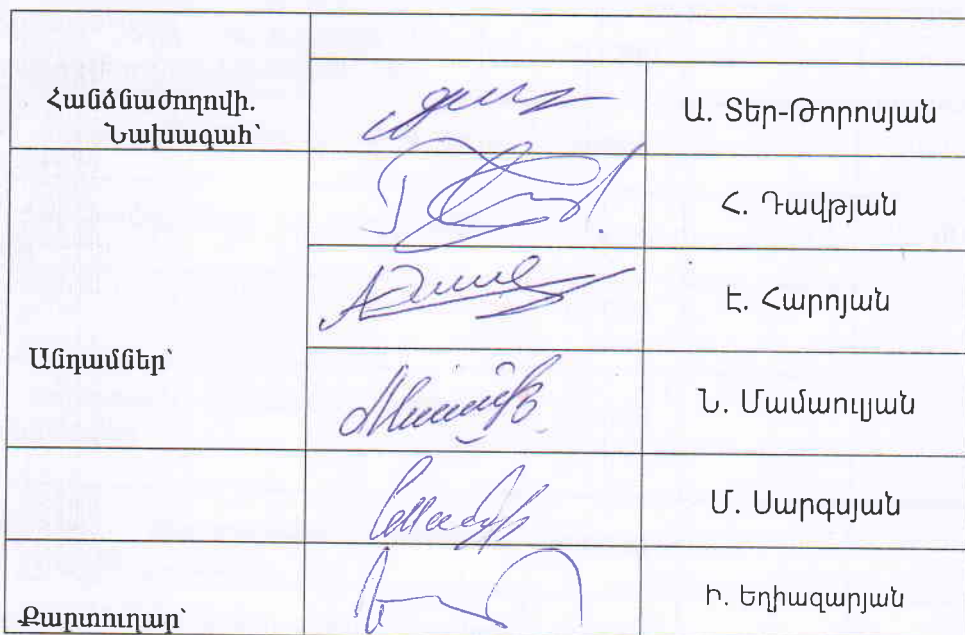 Հանձնաժողովի.
Նախագահ՝
Ա. Տեր-Թորոսյան
Հ. Դավթյան
Է. Հարոյան
Անդամներ՝
Ն. Մամաուլյան
Մ. Սարգսյան
Քարտուղար՝
Ի. Եղիազարյան